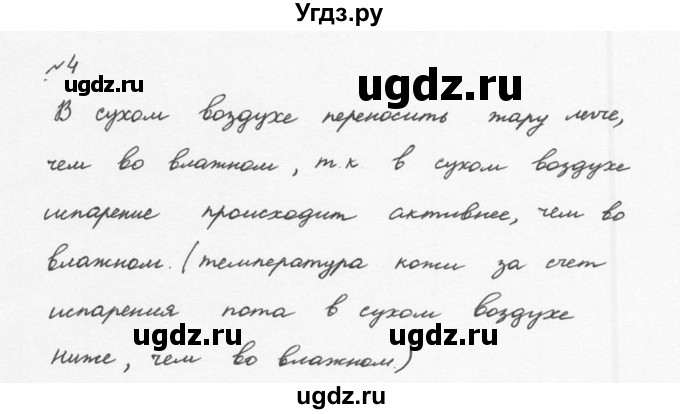 Угдз.ру
№4
ugdz.ru
ugdz.ru
ugdz.ru
В сухом воздухе переносить жару легче,
чем во влажном, т.к в сухом воздухе
испарение происходит активнее, чем во
влажном. (температура кожи за счет
испарения пота в сухом воздухе
ugdz.ru
ugdz.ru
ниже, чем во влажном.)
ugdz.ru